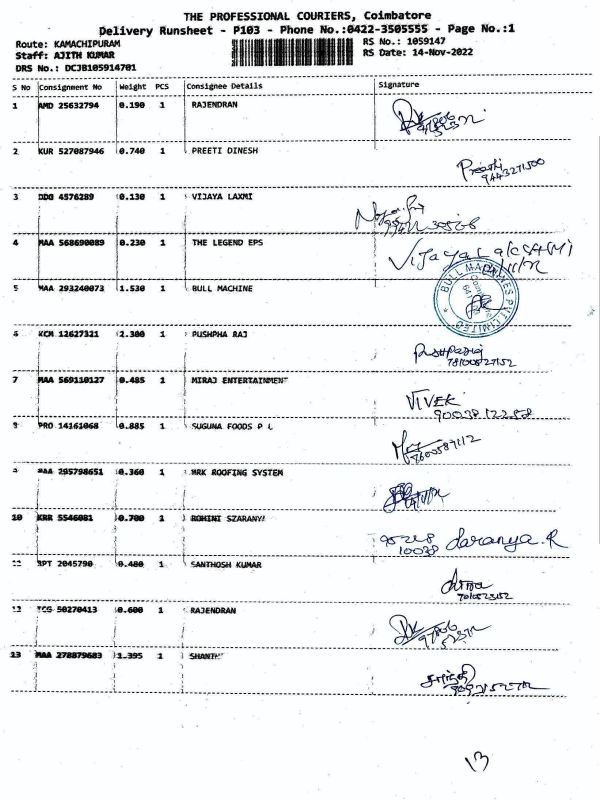 THE PROFESSIONAL COURIERS, Coimbatore
Delivery Runsheet - P103 - Phone No.:0422-3505555 - Page No.:1
Route: KAMACHIPURAM RS No.: 1059147
Staff: AJITH KUMAR RS Date: 14-Nov-2022
DRS No.: DCJB105914701
S No Consignment No Weight PCS Consignee Details Signature
1 AMD 25632794 0.190 1 RAJENDRAN
2 KUR 527087946 0.740 1 PREETI DINESH
Preethi
9443271500
3 DDG 4576289 0.130 1 VIJAYA LAXMI
4 MAA 568690089 0.230 1 THE LEGEND EPS
5 MAA 293240073 1.530 1 BULL MACHINE
BULL MACHINES PVT LIMITED
6 KCM 12627321 2.300 1 PUSHPHA RAJ
7 MAA 569110127 0.485 1 MIRAJ ENTERTAINMENT
VIVEK
8 PRO 14161068 0.885 1 SUGUNA FOODS P L
9 MAA 295798651 0.360 1 MRK ROOFING SYSTEM
10 KRR 5546081 0.700 1 ROHINI SZARANYA
95268
10038 Saranya.R
11 RPT 2045790 0.480 1 SANTHOSH KUMAR
12 TCG 50270413 0.600 1 RAJENDRAN
13 MAA 278879683 1.395 1 SHANTHI
13